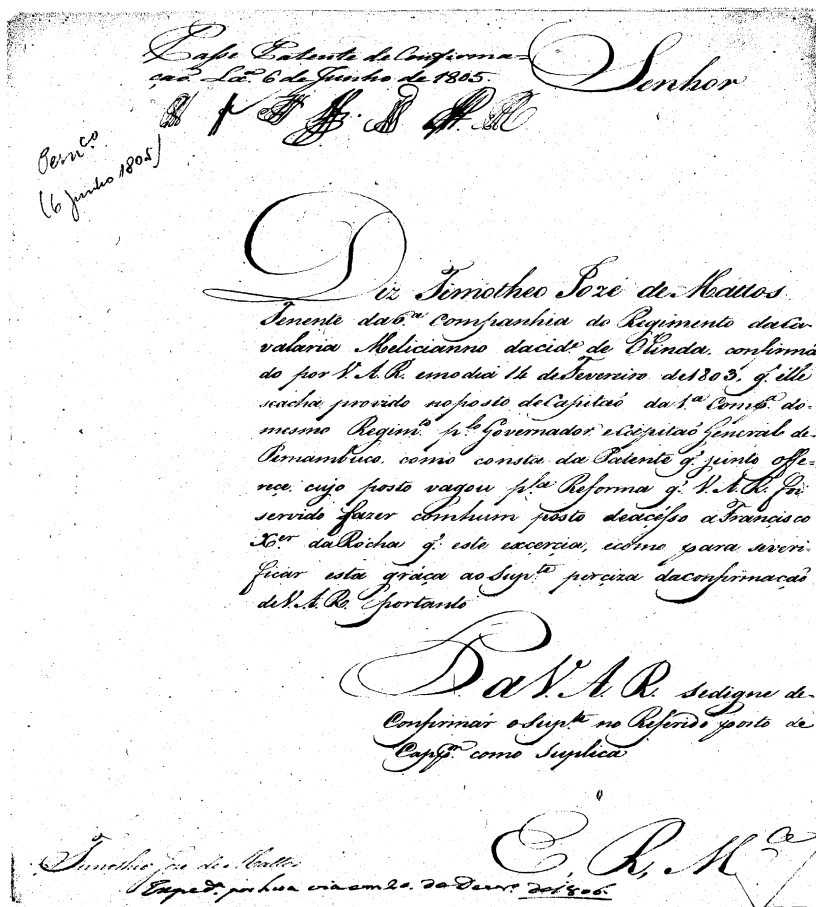 Passe Patente de Confirma=
çaõ. Lxª. 6 de Junho de 1805.
Senhor
Pernco.
(6 Junho 1805)
Diz Timotheo Jozé de Mattos
Tenente da 6.ª Companhia do Regimento da Ca-
valaria Melicianno da cid.e de Olinda, confirmá
do por V. A. R. em o dia 14 de Fevereiro de 1803, q' elle
seacha provido no posto de Capitaõ da 1.ª Comp.ª do-
mesmo Regim.to p.lo Governador, e Capitaõ General de-
Pernambuco, como consta da Patente q' junto offe-
rece, cujo posto vagou p.la Reforma q' V. A. R. foi
servido fazer com hum posto de acésso a Francisco
X.er da Rocha q' este excercia, e como para severi-
ficar esta gráça ao Sup.te perciza da confirmaçaõ
de V. A. R. portanto
P. a V. A. R. se digne de-
Confirmár o Sup.te no Referido posto de
Capp.m como Suplica
E. R. M.ce
Timotheo Joze de Mattos
Exped. por hua via em 20. de Dezr.o de 1806.